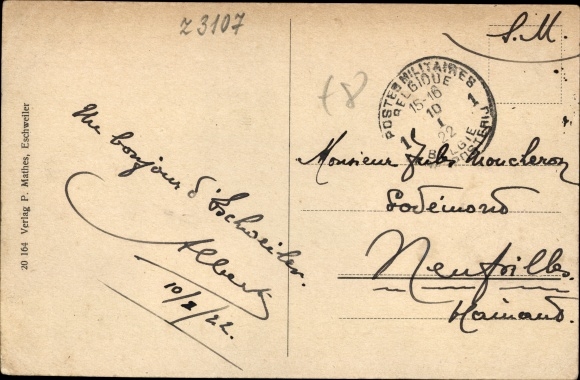 z 3107
S.M.
t8
POSTES MILITAIRES
BELGIQUE
15-16
10
1
22
1 1
Un bonjour d'Eschweiler.
Albert
10/1/22.
Monsieur Jules Moucheron
Neufvilles.
Hainaut.
20 164 Verlag P. Mathes, Eschweiler